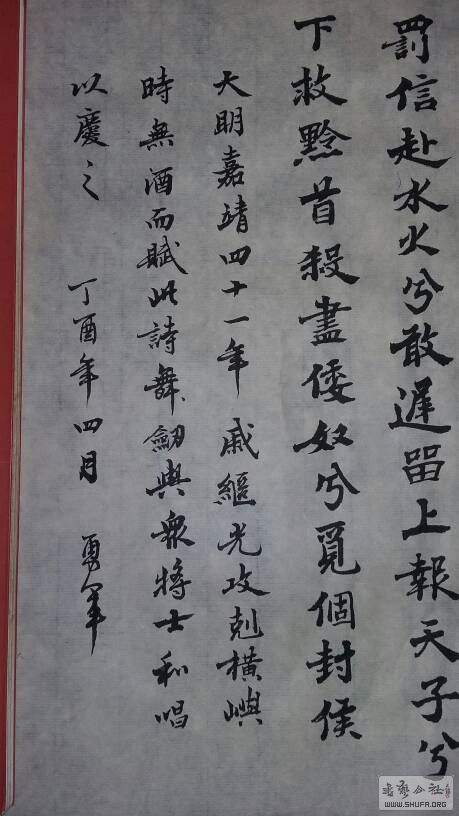 罰信赴水火兮敢遲留上報天子兮
下救黔首殺盡倭奴兮覓個封侯
大明嘉靖四十一年 戚繼光攻剋橫嶼
時無酒而賦此詩舞劍與眾將士和唱
以慶之 丁酉年四月 勇軍
WWW.SHUFA.ORG